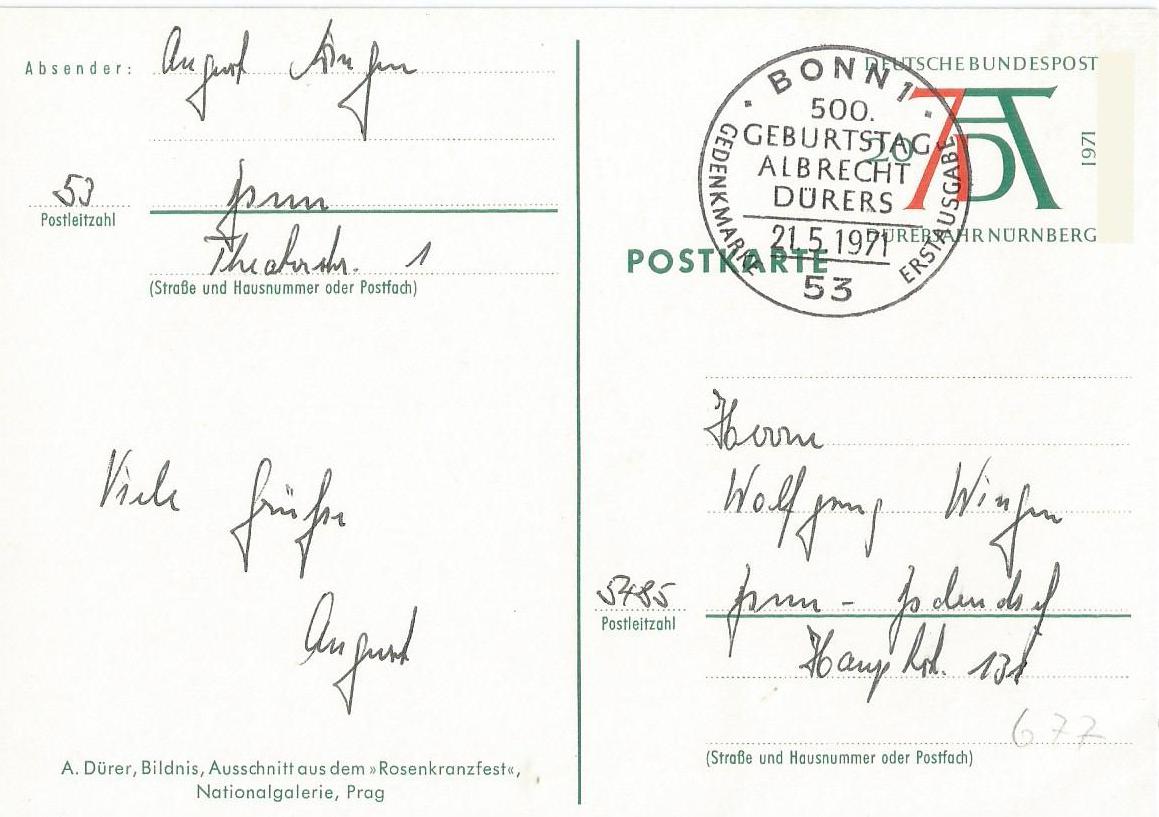 Absender: August
53
Postleitzahl
Bonn
Theaterstr. 1
(Straße und Hausnummer oder Postfach)
Viele Grüße
August
A. Dürer, Bildnis, Ausschnitt aus dem »Rosenkranzfest«,
Nationalgalerie, Prag
DEUTSCHE BUNDESPOST
20
AD
1971
DÜRERJAHR NÜRNBERG
BONN 1
500.
GEBURTSTAG
ALBRECHT
DÜRERS
21.5.1971
53
GEDENKMARKE
ERSTAUSGABE
POSTKARTE
Herrn
Wolfgang Wingen
5485
Postleitzahl
Bonn - Bodendorf
Hauptstr. 131
677
(Straße und Hausnummer oder Postfach)